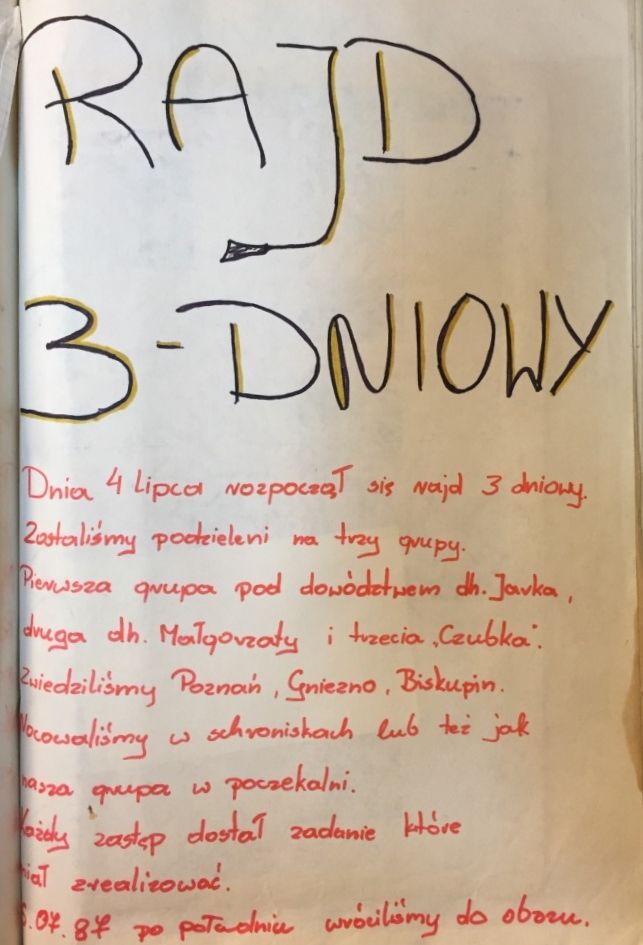 RAJD
3-DNIOWY
Dnia 4 Lipca rozpoczął się rajd 3 dniowy.
Zostaliśmy podzieleni na trzy grupy.
Pierwsza grupa pod dowództwem dh. Jarka,
druga dh. Małgorzaty i trzecia „Czubka".
Zwiedziliśmy Poznań, Gniezno, Biskupin.
Nocowaliśmy w schroniskach lub też jak
nasza grupa w poczekalni.
Każdy zastęp dostał zadanie które
miał zrealizować.
6.07.87 po południu wróciliśmy do obozu.